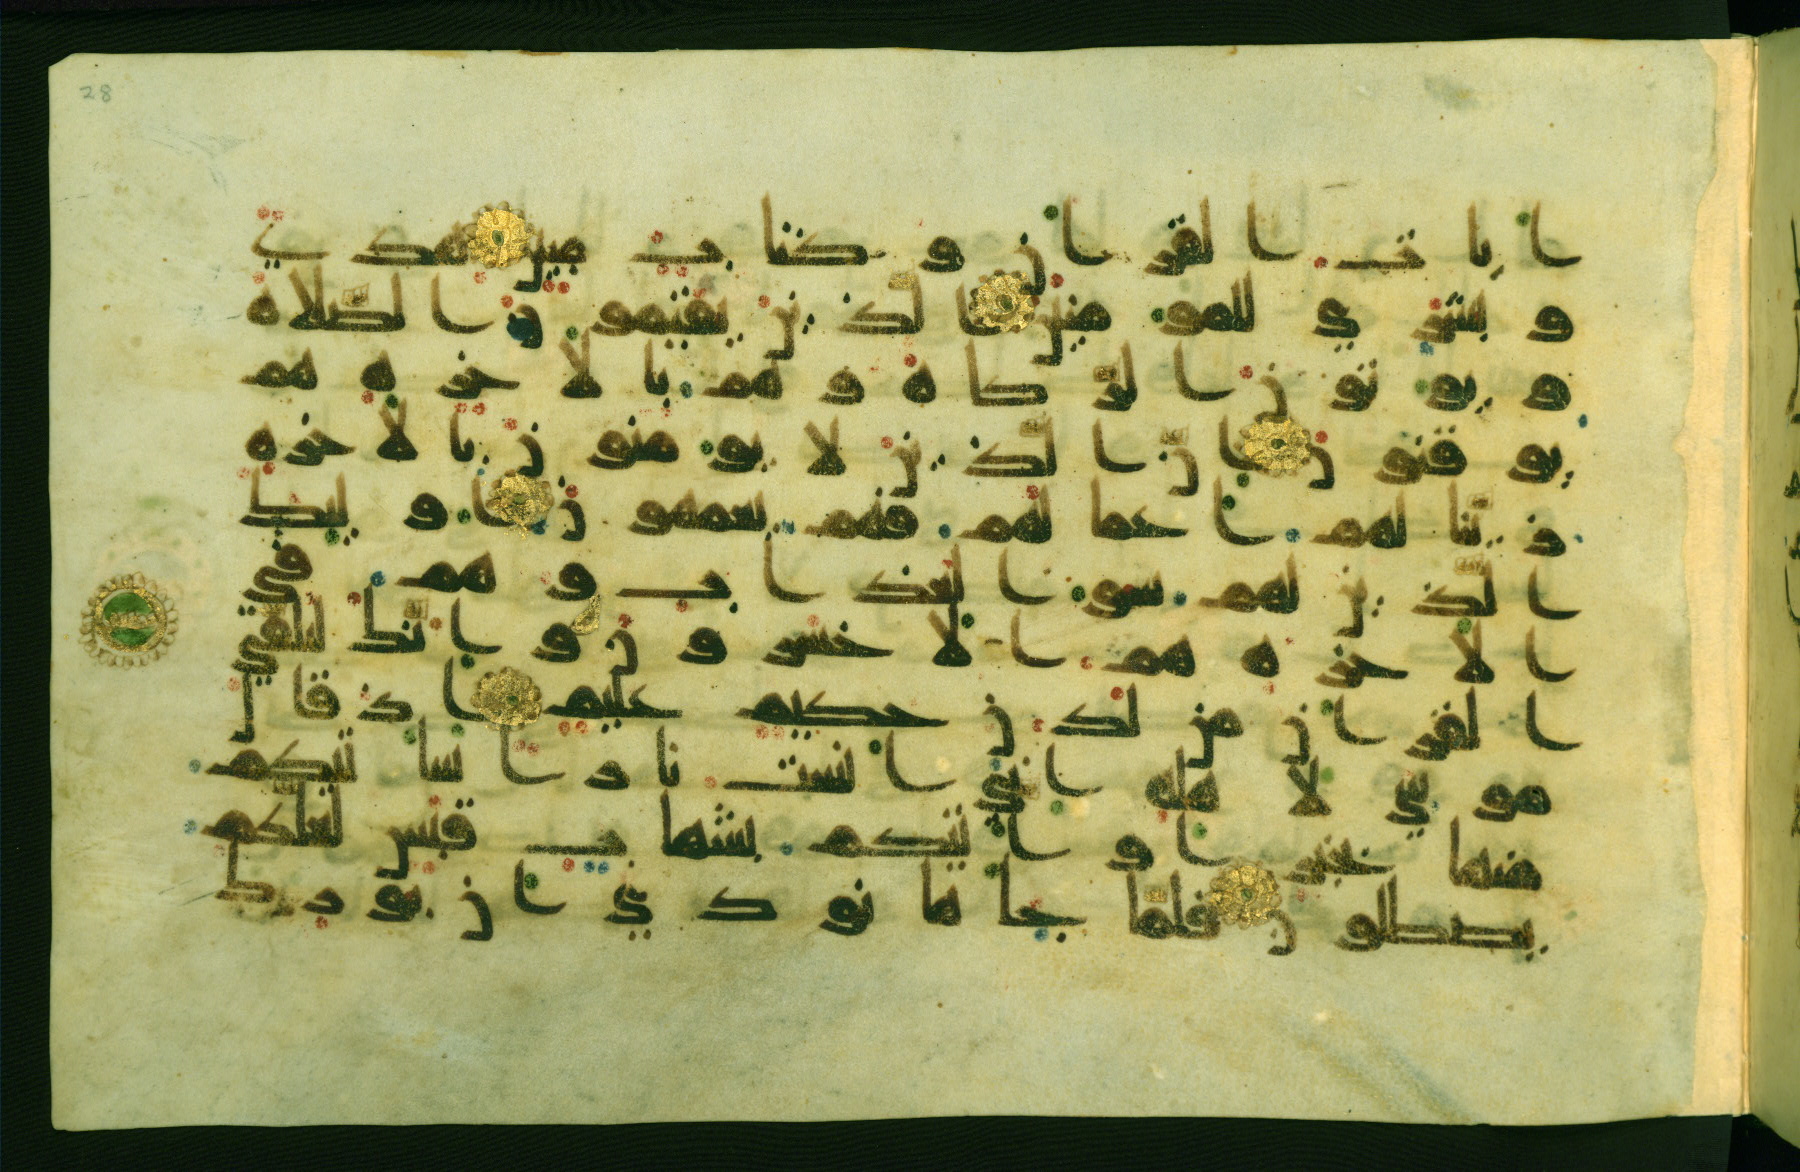 28
ايات القران وكتاب مبين هدى
وبشرى للمومنين الذين يقيمون الصلاه
ويوتون الزكاه وهم بالاخره هم
يوقنون ان الذين لا يومنون بالاخره
زينا لهم اعمالهم فهم يعمهون اوليك
الذين لهم سو العذاب وهم في
الاخره هم الاخسرون وانك لتلقى
القران من لدن حكيم عليم اذ قال
موسى لاهله اني انست نارا ساتيكم
منها بخبر او اتيكم بشهاب قبس لعلكم
تصطلون فلما جاها نودي ان بورك